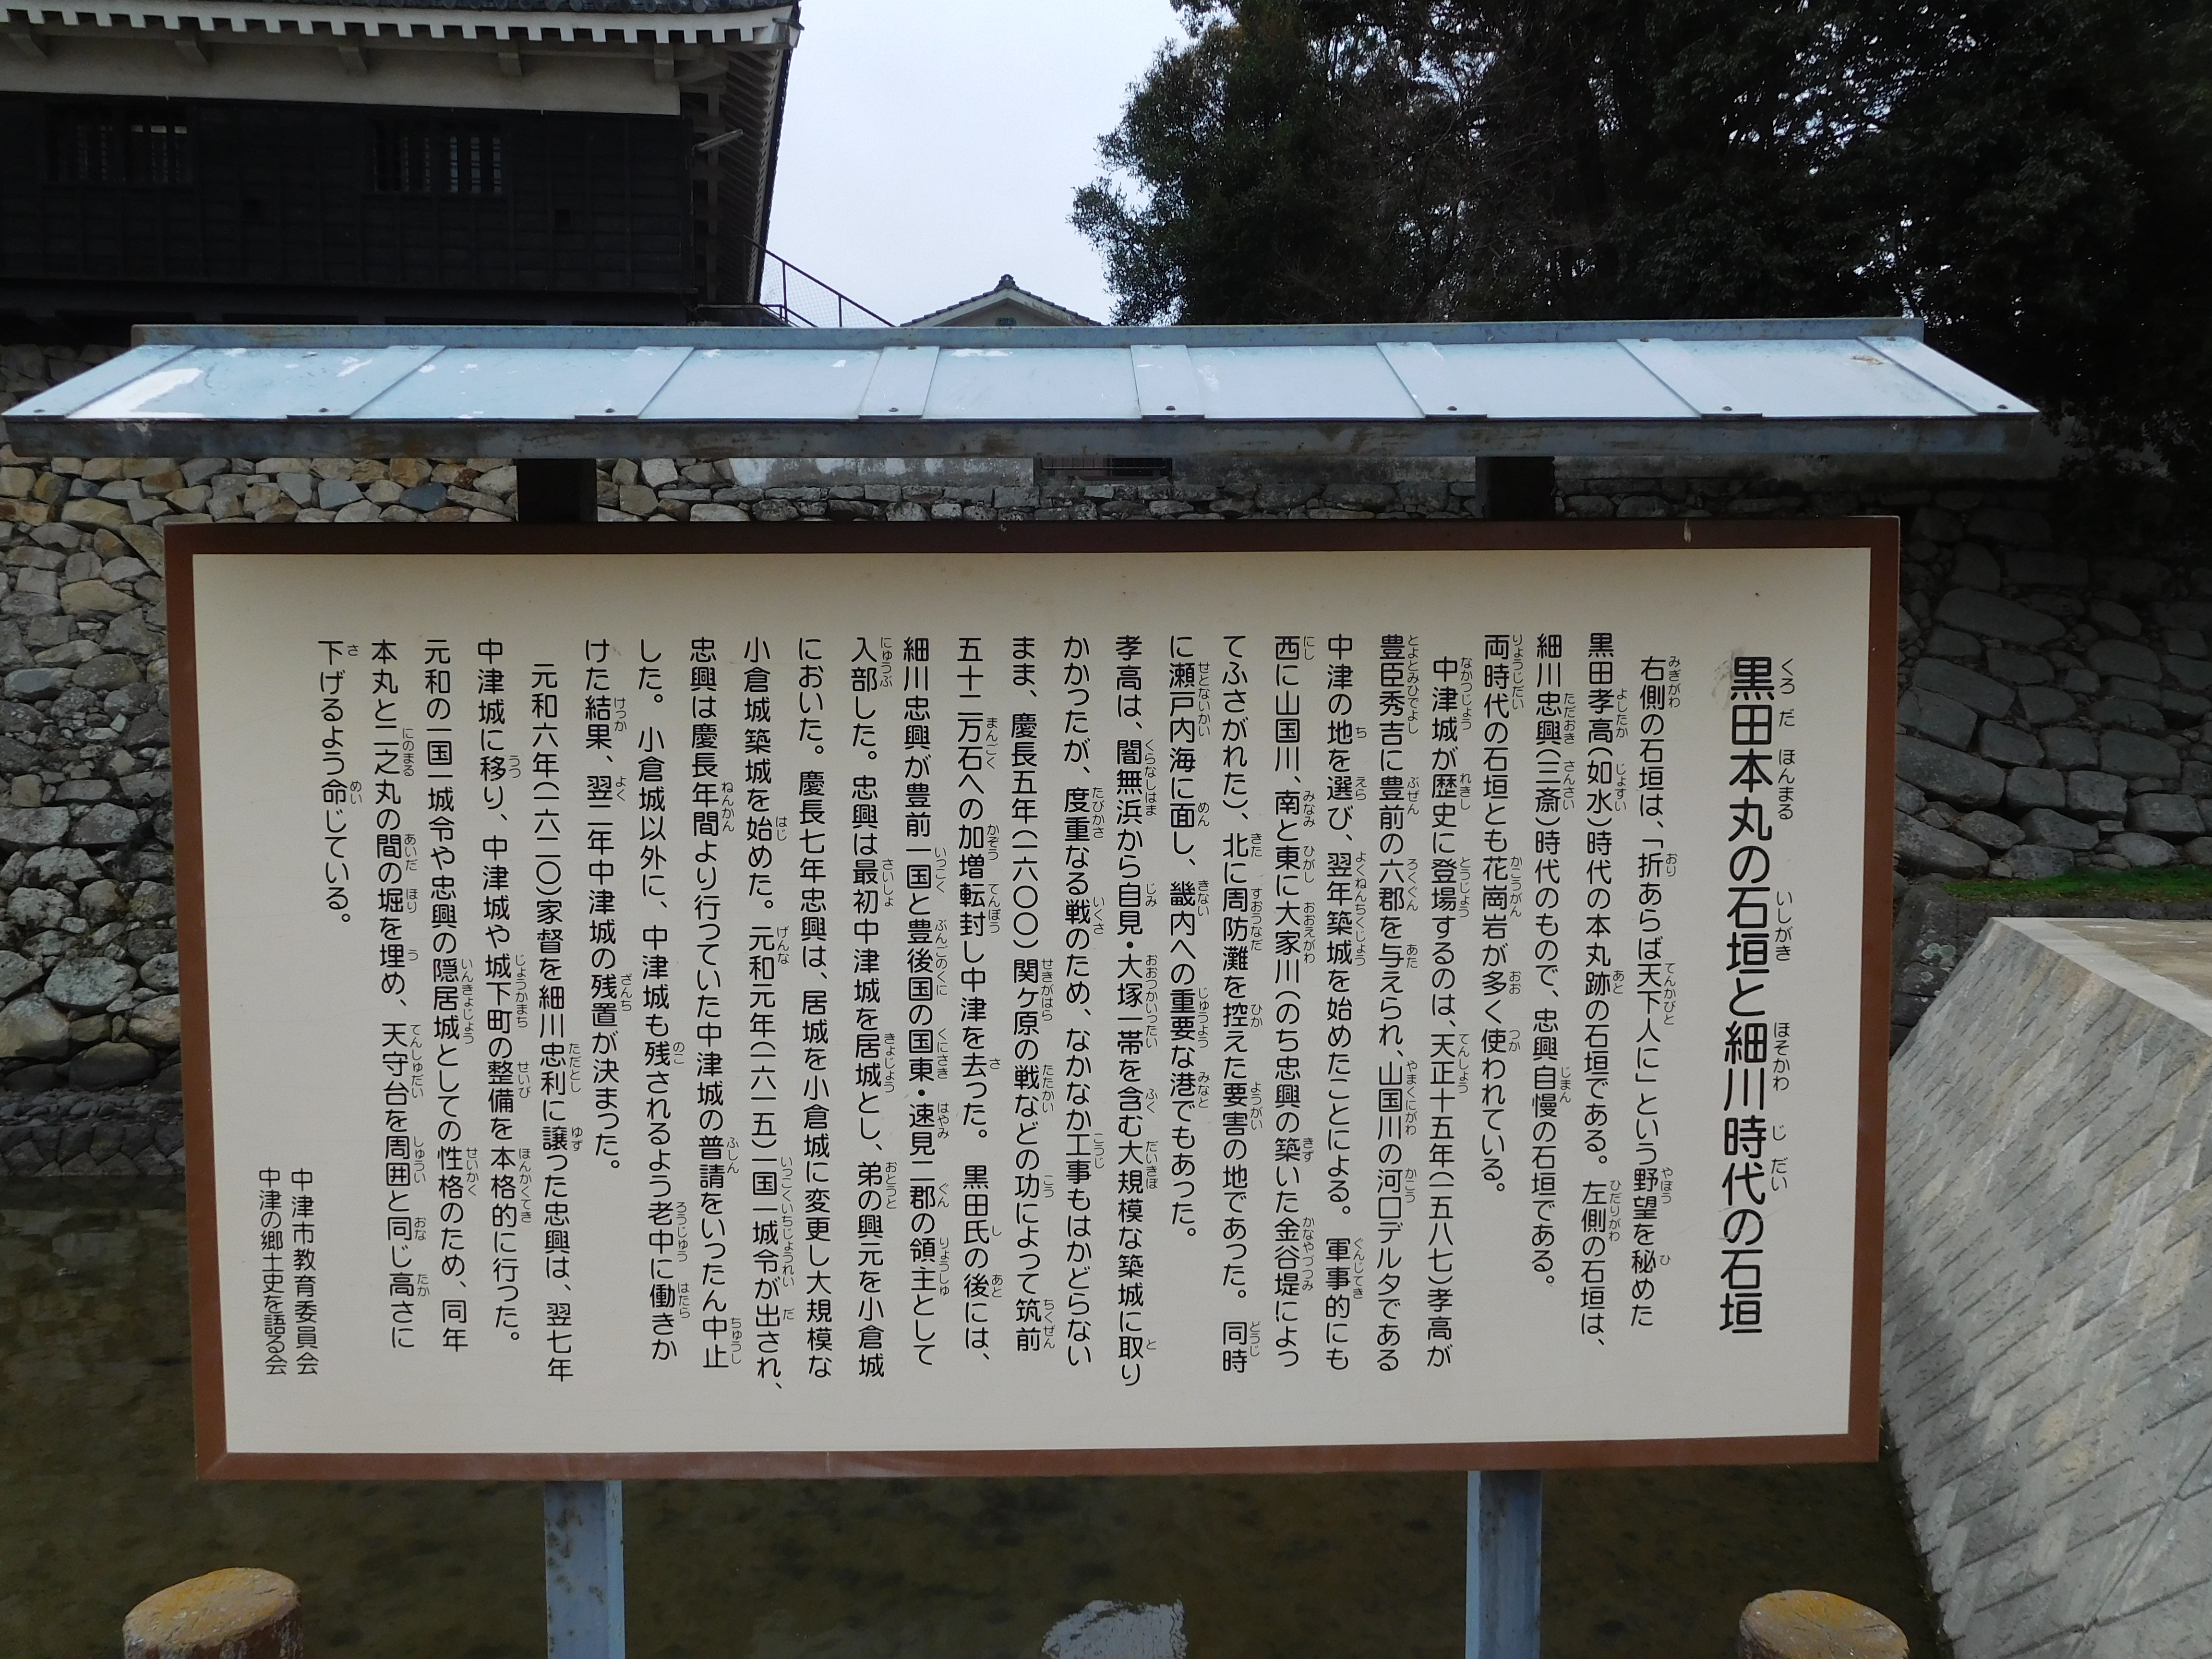 黒田本丸の石垣と細川時代の石垣
右側の石垣は、「折あらば天下人に」という野望を秘めた
黒田孝高(如水)時代の本丸跡の石垣である。左側の石垣は、
細川忠興(三斎)時代のもので、忠興自慢の石垣である。
両時代の石垣とも花崗岩が多く使われている。
中津城が歴史に登場するのは、天正十五年(一五八七)孝高が
豊臣秀吉に豊前の六郡を与えられ、山国川の河口デルタである
中津の地を選び、翌年築城を始めたことによる。軍事的にも
西に山国川、南と東に大家川(のち忠興の築いた金谷堤によっ
てふさがれた)、北に周防灘を控えた要害の地であった。同時
に瀬戸内海に面し、畿内への重要な港でもあった。
孝高は、闇無浜から自見・大塚一帯を含む大規模な築城に取り
かかったが、度重なる戦のため、なかなか工事もはかどらない
まま、慶長五年(一六〇〇)関ヶ原の戦などの功によって筑前
五十二万石への加増転封し中津を去った。黒田氏の後には、
細川忠興が豊前一国と豊後国の国東・速見二郡の領主として
入部した。忠興は最初中津城を居城とし、弟の興元を小倉城
においた。慶長七年忠興は、居城を小倉城に変更し大規模な
小倉城築城を始めた。元和元年(一六一五)一国一城令が出され、
忠興は慶長年間より行っていた中津城の普請をいったん中止
した。小倉城以外に、中津城も残されるよう老中に働きか
けた結果、翌二年中津城の残置が決まった。
元和六年(一六二〇)家督を細川忠利に譲った忠興は、翌七年
中津城に移り、中津城や城下町の整備を本格的に行った。
元和の一国一城令や忠興の隠居城としての性格のため、同年
本丸と二之丸の間の堀を埋め、天守台を周囲と同じ高さに
下げるよう命じている。
中津市教育委員会
中津の郷土史を語る会